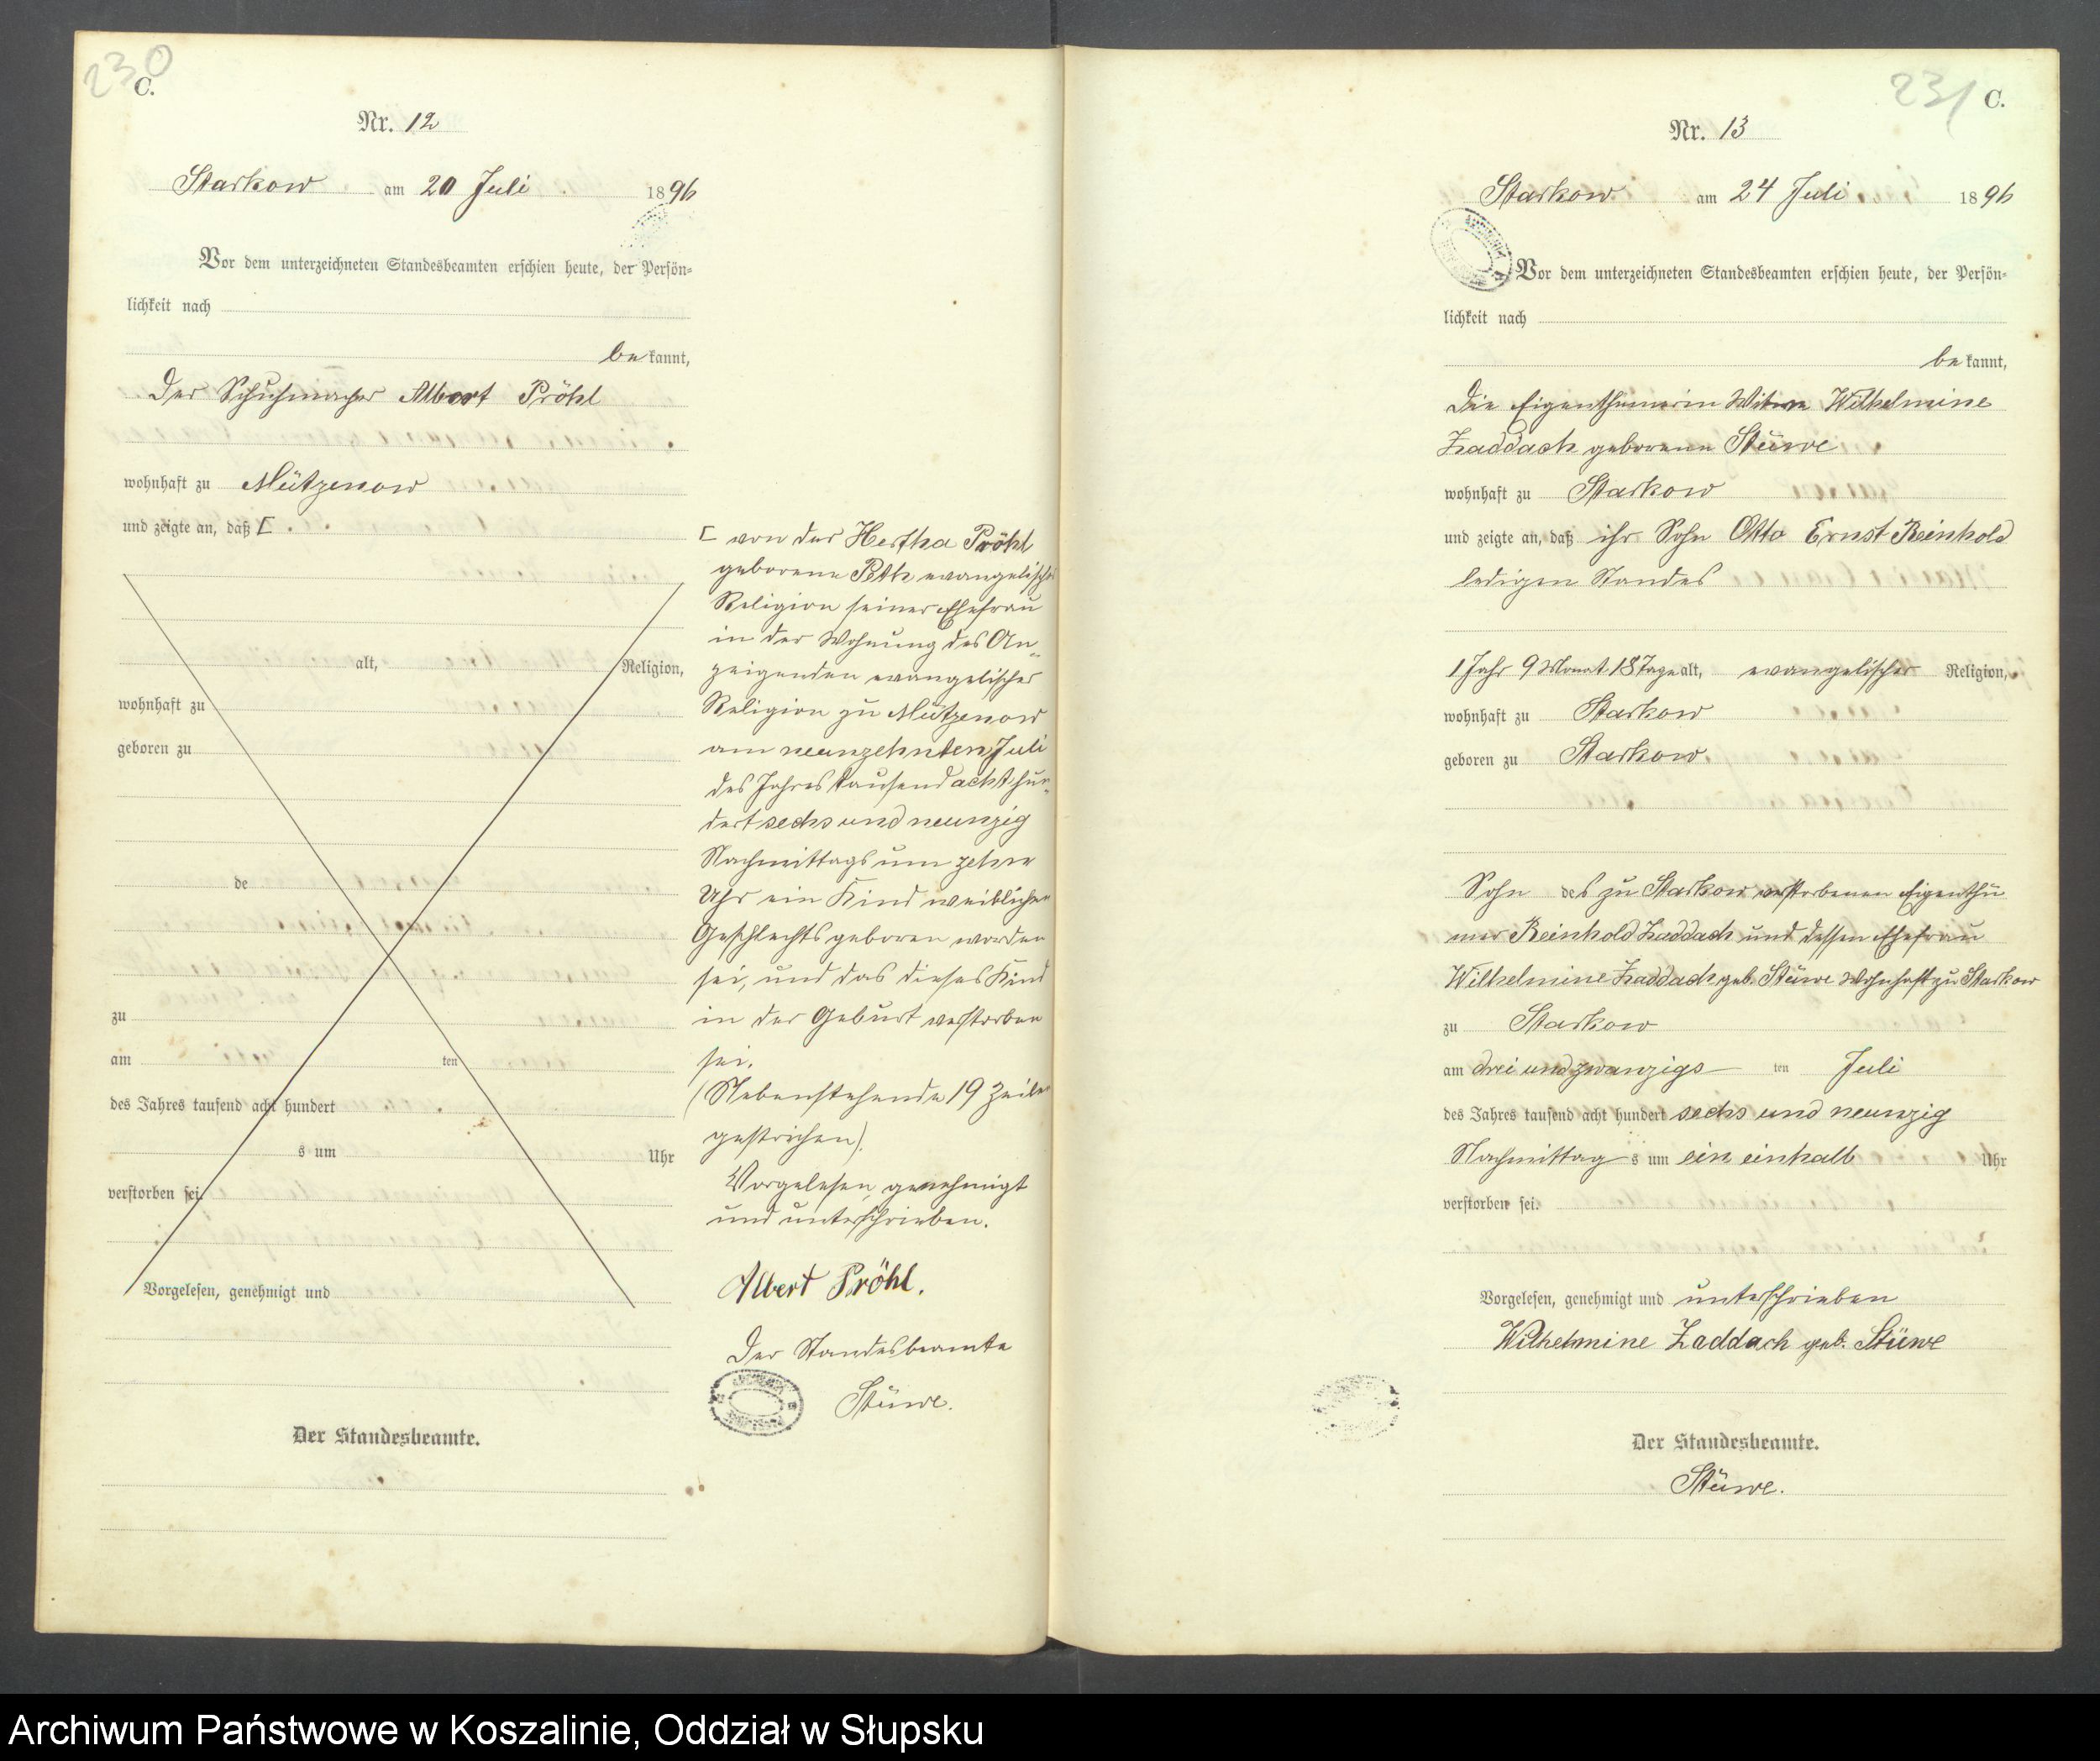 230
C.
Nr. 12
Starkow am 20 Juli 1896
Vor dem unterzeichneten Standesbeamten erschien heute, der Persön-
lichkeit nach
be kannt,
Der Schuhmacher Albert Pröhl
wohnhaft zu Mützenow
und zeigte an, daß [
alt, Religion,
wohnhaft zu
geboren zu
de
zu
am ten
des Jahres tausend acht hundert
s um Uhr
verstorben sei.
Vorgelesen, genehmigt und
Der Standesbeamte.
[ von der Hertha Pröhl
geborene evangelischer
Religion seiner Ehefrau
in der Wohnung des An-
zeigenden evangelischer
Religion zu Mützenow
am neunzehnten Juli
des Jahres tausend acht hun-
dert sechs und neunzig
Nachmittags um zehn
Uhr ein Kind weiblichen
Geschlechts geboren worden
sei, und das dieses Kind
in der Geburt verstorben
sei.
(Nebenstehende 19 Zeilen
gestrichen).
Vorgelesen, genehmigt
und unterschrieben.
Albert Pröhl.
Der Standesbeamte
Stüwe.
231
C.
Nr. 13
Starkow am 24 Juli 1896
Vor dem unterzeichneten Standesbeamten erschien heute, der Persön-
lichkeit nach
be kannt,
Die Eigenthümerin Witwe Wilhelmine
Zaddach geborene Stüwe
wohnhaft zu Starkow
und zeigte an, daß ihr Sohn Otto Ernst Reinhold
ledigen Standes
1 Jahr 9 Monat 18 Tage alt, evangelischer Religion,
wohnhaft zu Starkow
geboren zu Starkow
Sohn des zu Starkow verstorbenen Eigenthü
mer Reinhold Zaddach und dessen Ehefrau
Wilhelmine Zaddach geb. Stüwe wohnhaft zu Starkow
zu Starkow
am drei und zwanzigs ten Juli
des Jahres tausend acht hundert sechs und neunzig
Nachmittag s um ein einhalb Uhr
verstorben sei.
Vorgelesen, genehmigt und unterschrieben
Wilhelmine Zaddach geb. Stüwe
Der Standesbeamte.
Stüwe.
Archiwum Państwowe w Koszalinie, Oddział w Słupsku